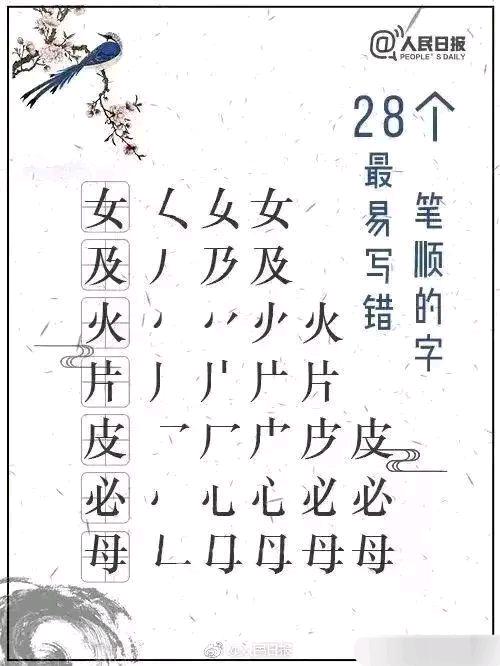 @人民日报
PEOPLE'S DAILY
28个
最易写错
笔顺的字
女 𡿨 女 女
及 丿 乃 及
火 火
片 丿 片
皮 乛 厂 皮
必 心 必 必
母 𠃊 母 母
@人民日报